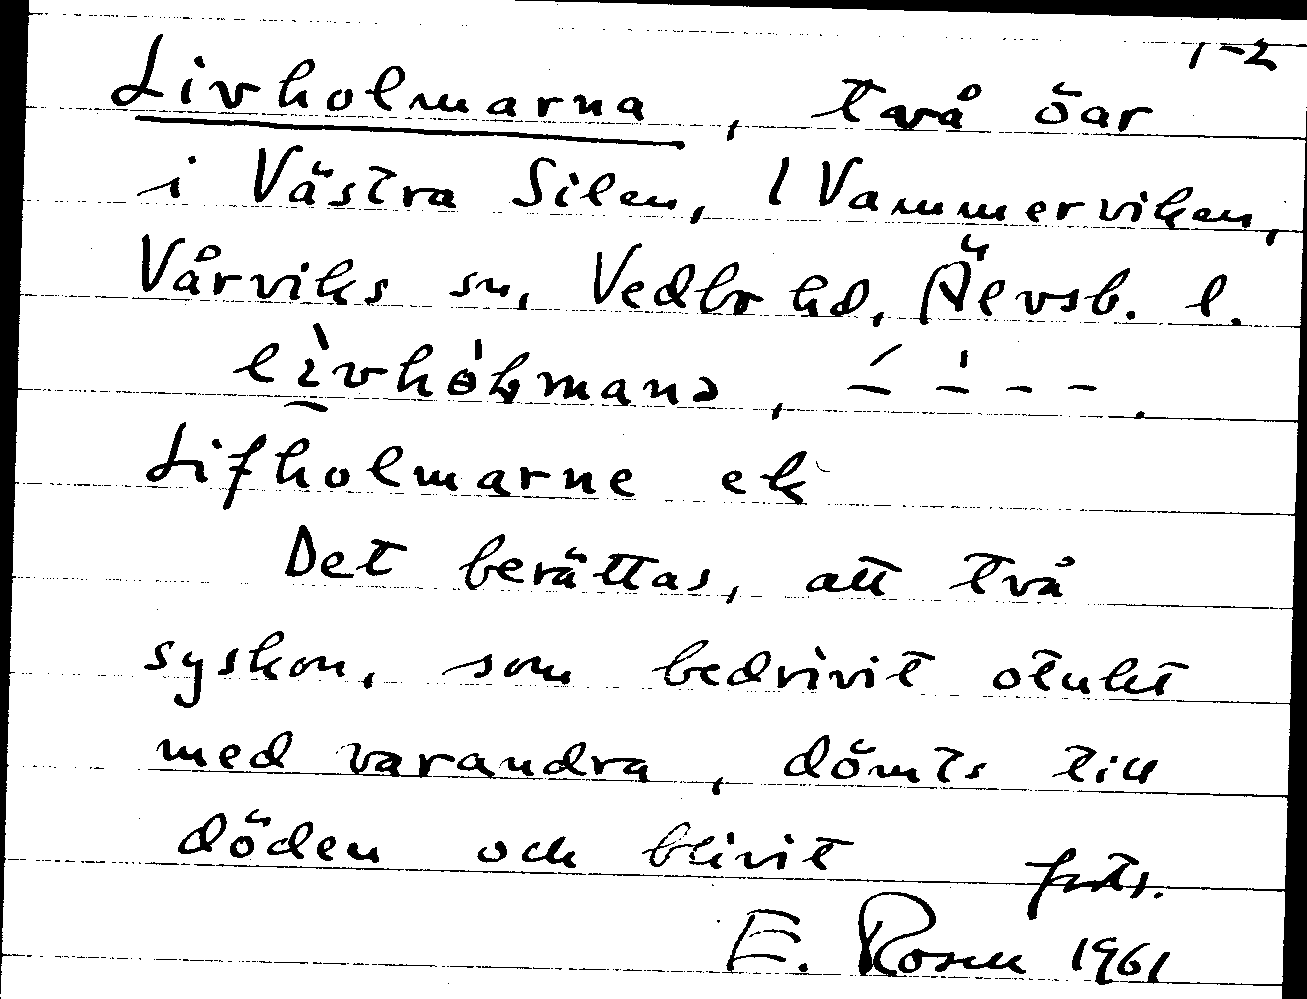 1-2
Livholmarna, två öar
i Västra Silen, l Vammerviken,
Vårviks sn, Vedbo hd, Älvsb. l.
Lifholmarne ek
Det berättas, att två
syskon, som bedrivit otukt
med varandra, dömts till
döden och blivit forts.
E. Rosell 1961